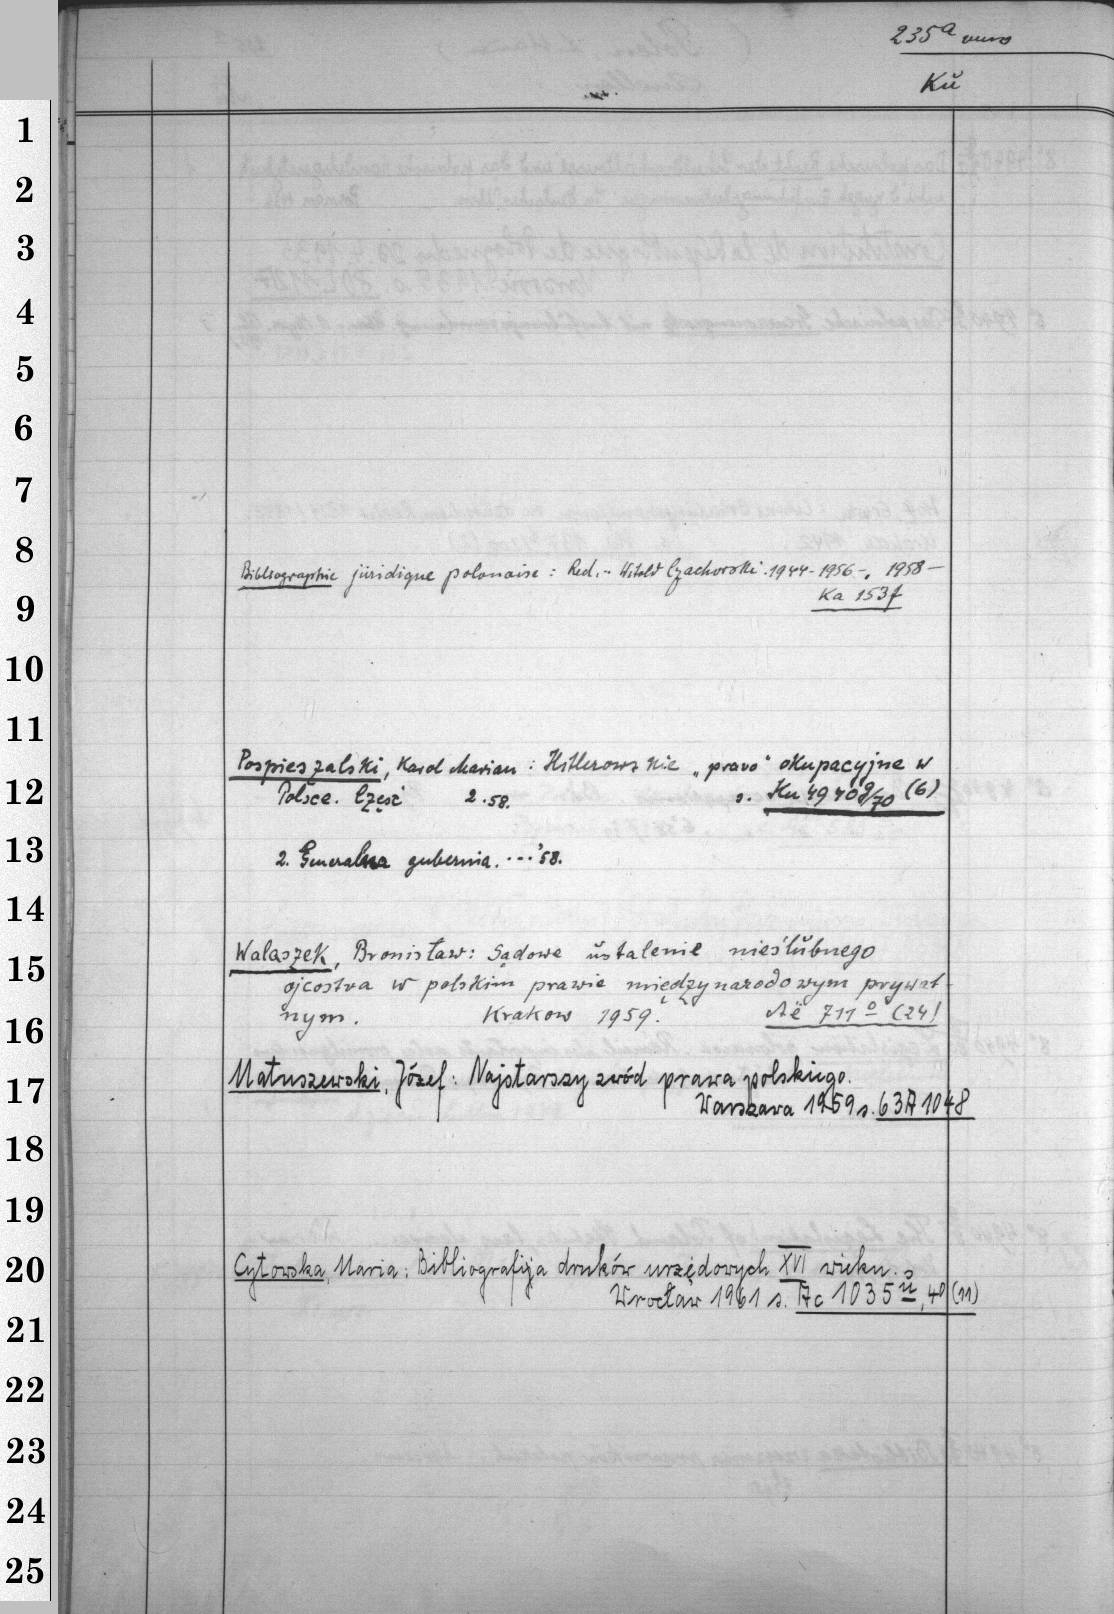 235a verso
Kŭ
1
2
3
4
5
6
7
8
Bibliographie jŭridique polonaise : Red.: Witold Czachorski. 1944-1956-, 1958-
9
Ka 1537
10
11
Pospieszalski, Karol Marian : Hitlerowskie „prawo" okupacyjne w
12
Polsce. Część 2.58. s. Ku 4940 g/70 (6)
13
2. Generalna gubernia. ...'58.
14
Walaszek, Bronisław: Sądowe ŭstalenie nieślŭbnego
15
ojcostva w polskim prawie międzynarodowym prywat-
16
nym. Krakow 1959. Aë 711 o (24)
Matuszewski, Józef: Najstarszy zwód prawa polskiego.
17
Warszawa 1959 s. 63 A 1048
18
19
20
Cytowska, Maria: Bibliografija druków urzędowych XVI wieku.
Wrocław 1961 s. Ac 1035 ŭ, 40 (11)
21
22
23
24
25